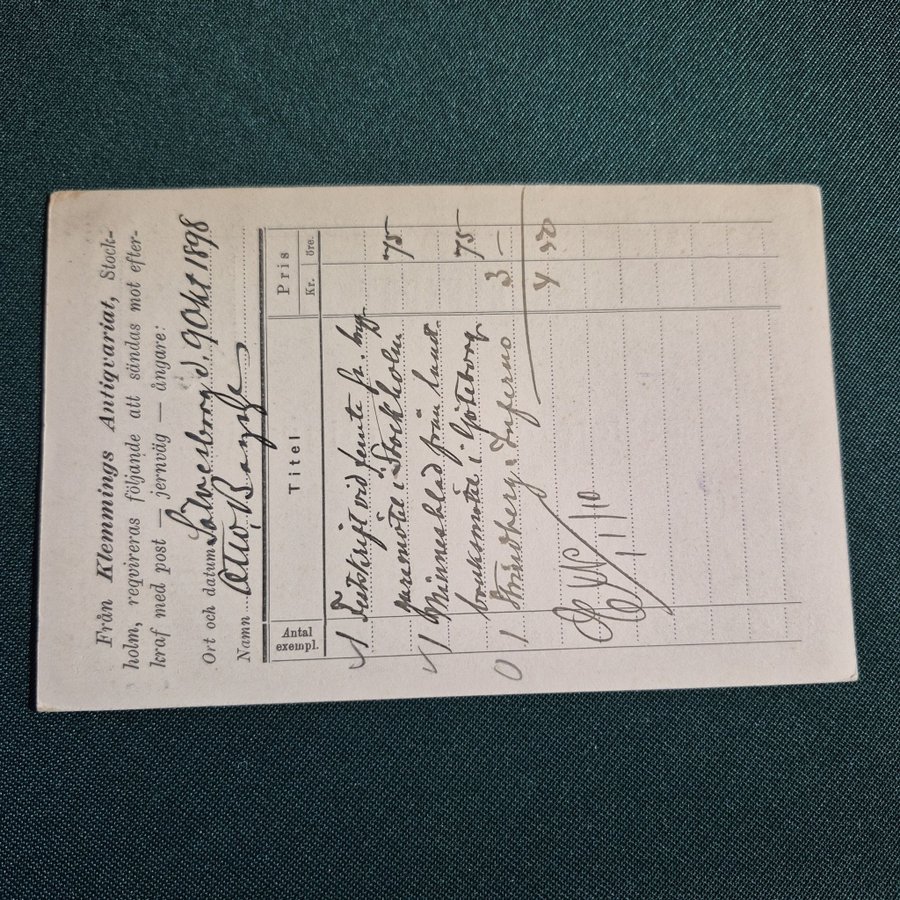 Från Klemmings Antiqvariat, Stock-
holm, reqvireras följande att sändas mot efter-
kraf med post — jernväg — ångare:
Ort och datum Sölvesborg d. 9 Okt 1898
Namn Otto
Antal exempl. Titel Pris Kr. öre.
1 Festskrift vid femte
i Stockholm 75
1 Minnesblad från
i Göteborg 75
0 1 Strindberg, Inferno 3 —
4 50
/10